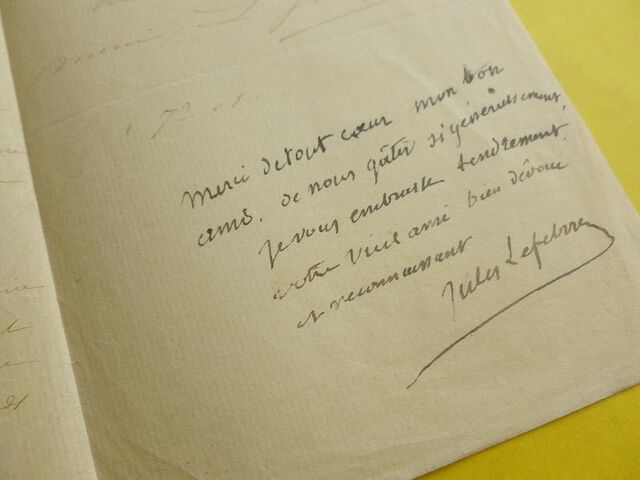 Merci de tout cœur mon bon
ami. de nous gâter si généreusement,
Je vous embrasse tendrement.
votre vieil ami bien dévoué
et reconnaissant
Jules Lefebvre